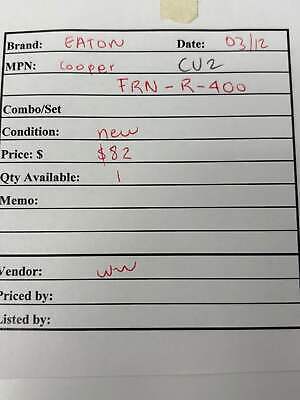 Brand: EATON Date: 03/12
MPN: Cooper CU2
FRN-R-400
Combo/Set
Condition: new
Price: $ $82
Qty Available: 1
Memo:
Vendor: WW
Priced by:
Listed by: